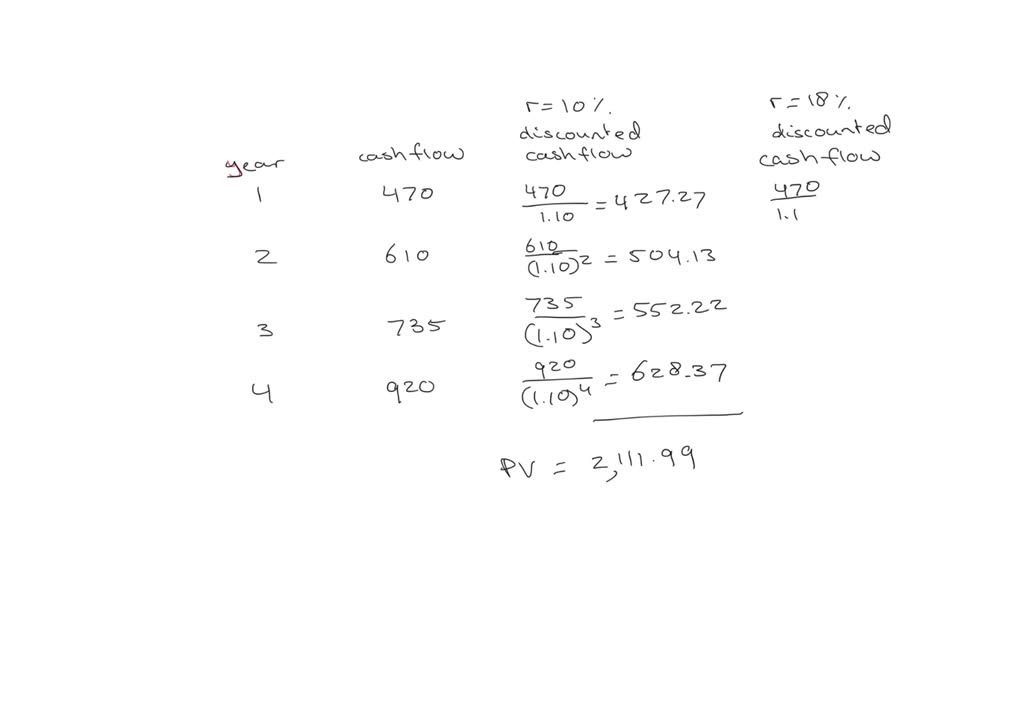 r = 10%. r = 18%.
discounted discounted
year cashflow cashflow cashflow
1 470 470/1.10 = 427.27 470/1.1
2 610 610/(1.10)^2 = 504.13
3 735 735/(1.10)^3 = 552.22
4 920 920/(1.10)^4 = 628.37
PV = 2,111.99